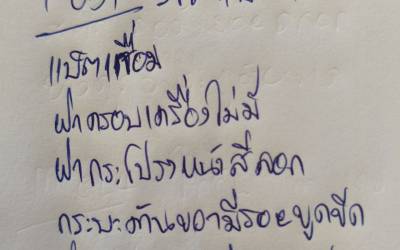 แบตเสื่อม
ฝาครอบเครื่องไม่มี
ฝากระโปรงหน้าสีลอก
กระบะด้านขวามีรอยขูดขีด